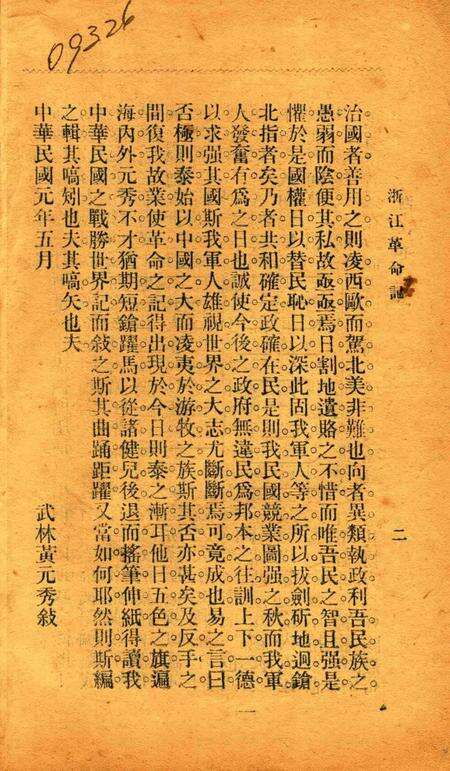 09326
浙江革命記
二
治國者善用之則凌西歐而駕北美非難也向者異類執政利吾民族之
愚弱而陰便其私故亟亟焉日割地遺賂之不惜而唯吾民之智且强是
懼於是國權日以替民恥日以深此固我軍人等之所以拔劍斫地迴鎗
北指者矣乃者共和確定政確在民是則我民國競業圖强之秋而我軍
人發奮有爲之日也誠使今後之政府無違民爲邦本之往訓上下一德
以求强其國斯我軍人雄視世界之大志尤斷斷焉可竟成也易之言曰
否極則泰始以中國之大而凌夷於游牧之族斯其否亦甚矣及反手之
間復我故業使革命之記得出現於今日則泰之漸耳他日五色之旗遍
海內外元秀不才猶期短鎗躍馬以從諸健兒後退而搖筆伸紙得讀我
中華民國之戰勝世界記而敍之斯其曲踊距躍又當如何耶然則斯編
之輯其嚆矧也夫其嚆矢也夫
中華民國元年五月
武林黃元秀敍